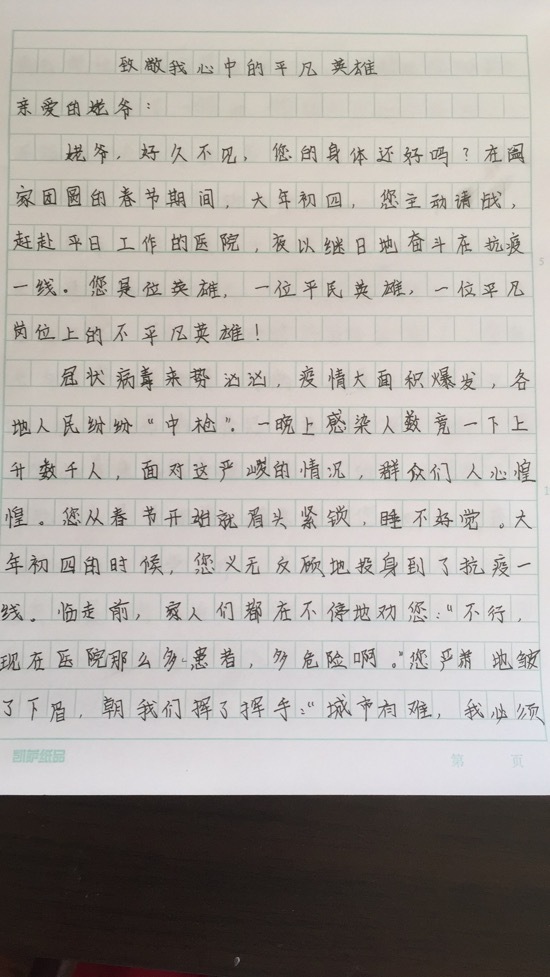 致敬我心中的平凡英雄
亲爱的姥爷：
姥爷，好久不见，您的身体还好吗？在阖
家团圆的春节期间，大年初四，您主动请战，
赶赴平日工作的医院，夜以继日地奋斗在抗疫
一线。您是位英雄，一位平民英雄，一位平凡
岗位上的不平凡英雄！
冠状病毒来势汹汹，疫情大面积爆发，各
地人民纷纷“中枪”。一晚上感染人数竟一下上
升数千人，面对这严峻的情况，群众们人心惶
惶。您从春节开始就眉头紧锁，睡不好觉。大
年初四的时候，您义无反顾地投身到了抗疫一
线。临走前，家人们都在不停地劝您：“不行，
现在医院那么多患者，多危险啊。”您严肃地皱
了下眉，朝我们挥了挥手：“城市有难，我必须
凯萨纸品
第 页
5
1